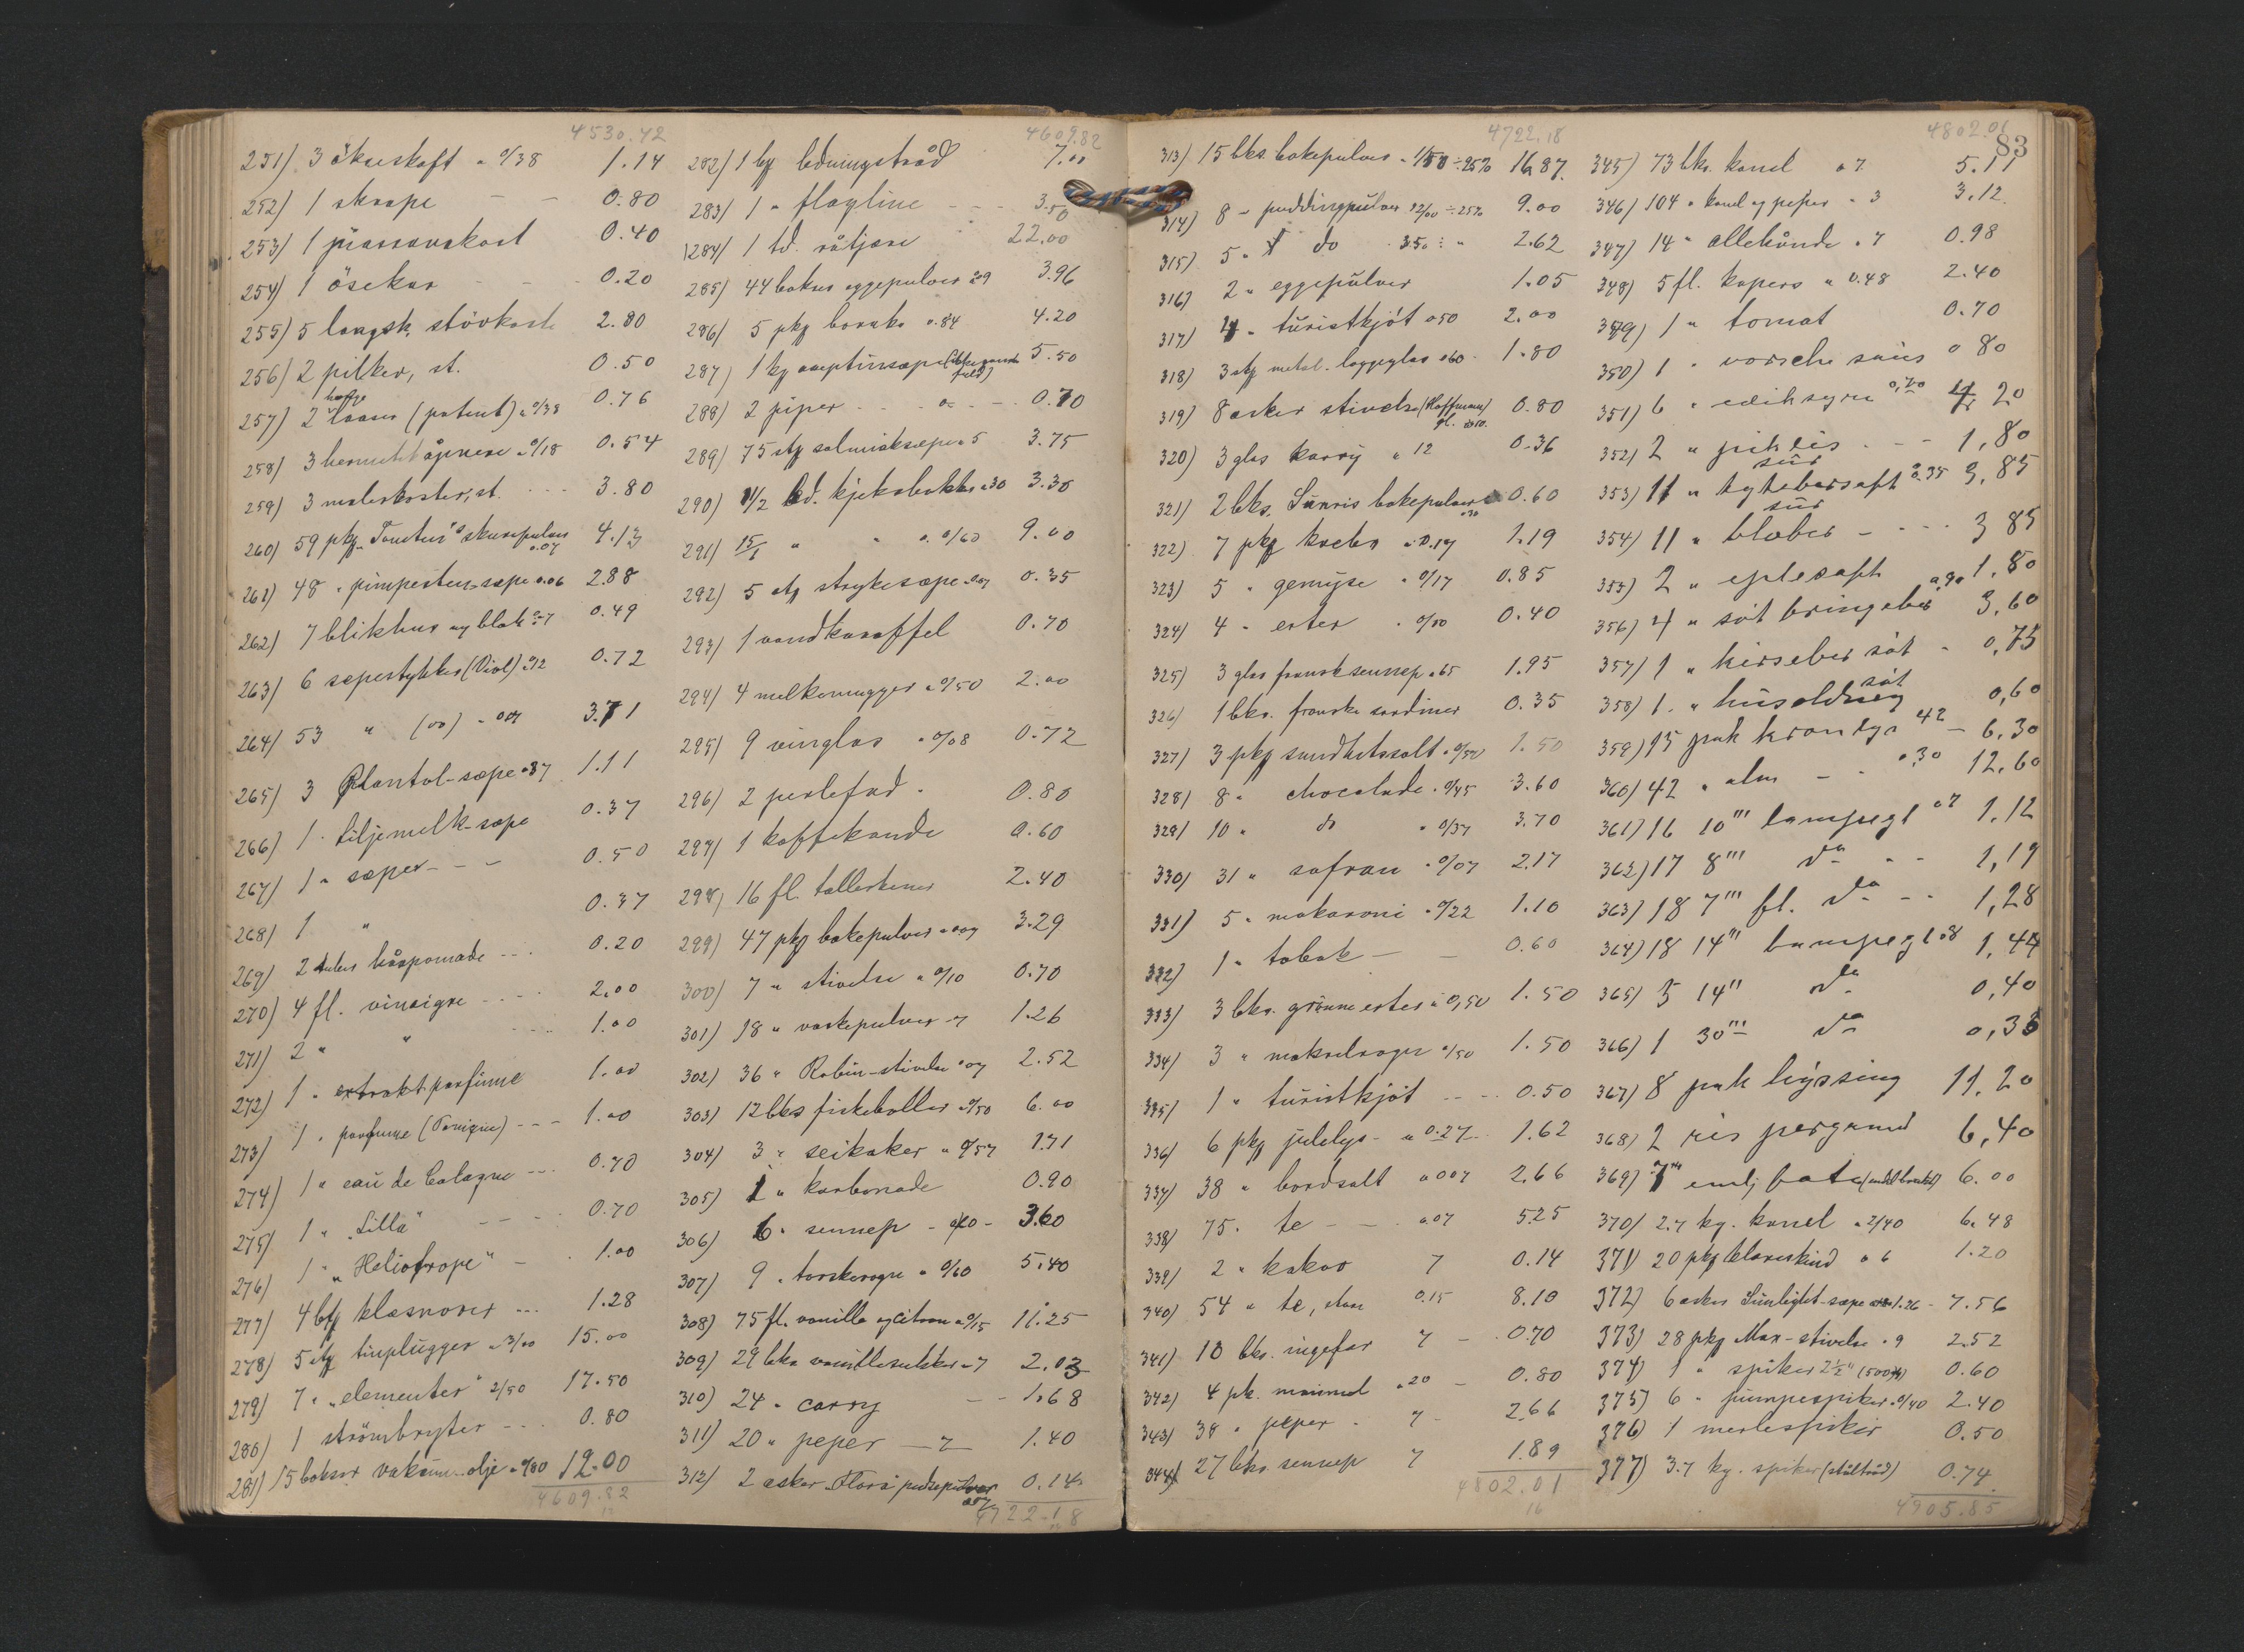 4530.42
251) 3 økseskaft a 0/38 1.14
252) 1 skrape - - 0.80
253) 1 piassavakost 0.40
254) 1 øsekar - - 0.20
255) 5 langsk. støvkoste 2.80
256) 2 pilker, st. 0.50
257) 2 hænge laase (patent) a 0/38 0.76
258) 3 hermetikåpnere a 0/18 0.54
259) 3 malerkoster, st. --- 3.80
260) 59 pkg. skurepulver a.07 4.13
261) 48 " pimpesten-sæpe a 0.06 2.88
262) 7 blikhus og blak a 7 0.49
263) 6 sæpestykker (Viol) a 12 0.72
264) 53 " (00) - a 07 3.71
265) 3 Plantol-sæpe a 37 1.11
266) 1 " Liljemelk-sæpe 0.37
267) 1 " sæper - - 0.50
268) 1 " 0.37
269) 2 tuber hårpomade --- 0.20
270) 4 fl. vinaigre --- 2.00
271) 2 " " --- 1.00
272) 1 " extrakt parfume 1.00
273) 1 " parfume --- 1.00
274) 1 " eau de Cologne --- 0.70
275) 1 " "Lilla" --- 0.70
276) 1 " "Heliotrope" - 1.00
277) 4 klæsnorer --- 1.28
278) 5 stg tinplugger a 3/00 15.00
279) 7 " "elementer" 2/50 17.50
280) 1 strømbryter --- 0.80
281) 15 bokser vakum-olje a 0/80 12.00
4609.82
4609.82
282) 1 kg ledningstråd 7.00
283) 1 " flagline --- 3.50
284) 1 td. råtjære 22.00
285) 44 bokser eggepulver a 9 3.96
286) 5 pkg boraks a.84 4.20
287) 1 kg 5.50
288) 2 piper --- 0.70
289) 75 stg salmiaksæpe a 5 3.75
290) 11/2 bd. kjeksbokser a 30 3.30
291) 15/1 " " a 0/60 9.00
292) 5 stg strykesæpe a 07 0.35
293) 1 vandkaraffel 0.70
294) 4 melkemugger a 0/50 2.00
295) 9 vinglas a 0/08 0.72
296) 2 perlefad - 0.80
297) 1 kaffekande 0.60
298) 16 fl. tallerkener 2.40
299) 47 pkg bakepulver a 07 3.29
300) 7 " stivelse a 0/10 0.70
301) 18 " vaskepulver a 7 1.26
302) 36 " Robin-stivelse a 07 2.52
303) 12 bks fiskeboller a 0/50 6.00
304) 3 " seikaker a 0/57 1.71
305) 1 " karbonade 0.90
306) 6 " sennep - a 60 - 3.60
307) 9 " torskerogn a 0/60 5.40
308) 75 fl. vanille og citron a 0/15 11.25
309) 29 bks vanillesukker a 7 2.03
310) 24 " carry - - 1.68
311) 20 " peper - 7 1.40
312) 2 asker Flora pudsepulver a 07 0.14
4722.18
4722.18
313) 15 bks. bakepulver a 1/50 ÷ 25% 16.87
314) 8 " puddingpulver 12/00 ÷ 25% 9.00
315) 5 " do 3.50 ÷ " 2.62
316) 2 " eggepulver 1.05
317) 4 " turistkjøt a 50 2.00
318) 3 stg metal. loggeglas a 60 - 1.80
319) 8 asker stivelse (Hoffmann) gl. a 10. 0.80
320) 3 glas karry a 12 0.36
321) 2 bks. Sunris bakepulver a 30 0.60
322) 7 pkg a 0.17 1.19
323) 5 " gemyse a 0/17 0.85
324) 4 " erter a 0/10 0.40
325) 3 glas fransk sennep a 65 1.95
326) 1 bks. franske sardiner 0.35
327) 3 pkg sundhetssalt a 0/50 1.50
328) 8 " chocolade a 0/45 3.60
329) 10 " do a 0/37 3.70
330) 31 " safran a 0/07 2.17
331) 5 " makaroni a 0/22 1.10
332) 1 " tobak - - 0.60
333) 3 bks. grønne erter a 0,50 1.50
334) 3 " makrelrogn a 0/50 1.50
335) 1 " turistkjøt --- 0.50
336) 6 pkg julelys - a 0.27 1.62
337) 38 " bordsalt a 007 2.66
338) 75 " te - - - a.07 5.25
339) 2 " kakao 7 0.14
340) 54 " te, stor 0.15 8.10
341) 10 bks. ingefær 7 - 0.70
342) 4 pk. maismel a 20 - 0.80
343) 38 " peper - 7 - 2.66
344) 27 bks. sennep 7 1.89
4802.01
16
4802.01
83
345) 73 bks. kanel a 7 5.11
346) 104 " kanel og peper a 3 3.12
347) 14 " allehånde a 7 0.98
348) 5 fl. kapers a 0.48 2.40
349) 1 " tomat 0.70
350) 1 " vorsche saus 0 80
351) 6 " ediksyre 0,70 4 20
352) 2 " pikles - - - 1,80
353) 11 " tytebærsaft sur a 35 3,85
354) 11 " blåbær sur - --- 3 85
355) 2 " eplesaft a 90 1,80
356) 4 " søt bringebær 3,60
357) 1 " kirsebær søt - 0,75
358) 1 " husoldning søt 0,60
359) 15 pak kronlys 42 - 6,30
360) 42 " alm - - a 30 12,60
361) 16 10''' lampegl a 7 1,12
362) 17 8''' do - - 1,19
363) 18 7''' fl. do - - 1,28
364) 18 14''' lampegl a 8 1,44
365) 5 14''' do 0,40
366) 1 30''' do 0,35
367) 8 pak lyssing 11,20
368) 2 ris pergament 6,40
369) 7 emlj fate 6.00
370) 2.7 kg. kanel a 2/40 6.48
371) 20 pkg klareskind a 6 1.20
372) 6 asker Sunlight-sæpe a 1.26 - 7.56
373) 28 pkg Max-stivelse a 9 2.52
374) 1 " spiker 2½" (500) 0.60
375) 6 " pumpespiker a 0/40 2.40
376) 1 merlespiker 0.50
377) 3.7 kg. spiker (ståltråd) 0.74
4905.85